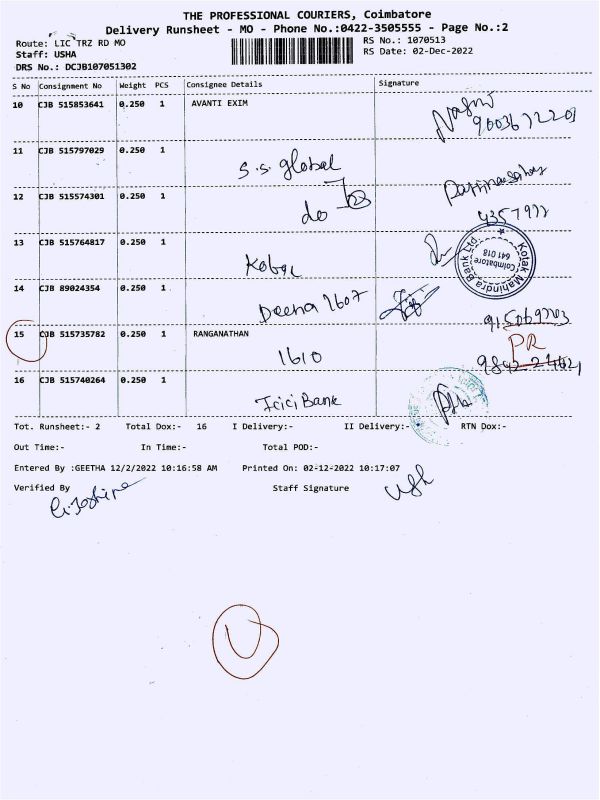 THE PROFESSIONAL COURIERS, Coimbatore
Delivery Runsheet - MO - Phone No.:0422-3505555 - Page No.:2
Route: LIC TRZ RD MO
Staff: USHA
DRS No.: DCJB107051302
RS No.: 1070513
RS Date: 02-Dec-2022
S No Consignment No Weight PCS Consignee Details Signature
10 CJB 515853641 0.250 1 AVANTI EXIM
9003672209
11 CJB 515797029 0.250 1 S.S. global
12 CJB 515574301 0.250 1 do
13 CJB 515764817 0.250 1 Kotac
Kotak Mahindra Bank Ltd
Coimbatore
641 018
14 CJB 89024354 0.250 1 Deena 1607
15 CJB 515735782 0.250 1 RANGANATHAN
1610
PR
16 CJB 515740264 0.250 1 Icici Bank
Tot. Runsheet:- 2 Total Dox:- 16 I Delivery:- II Delivery:- RTN Dox:-
Out Time:- In Time:- Total POD:-
Entered By :GEETHA 12/2/2022 10:16:58 AM Printed On: 02-12-2022 10:17:07
Verified By Staff Signature